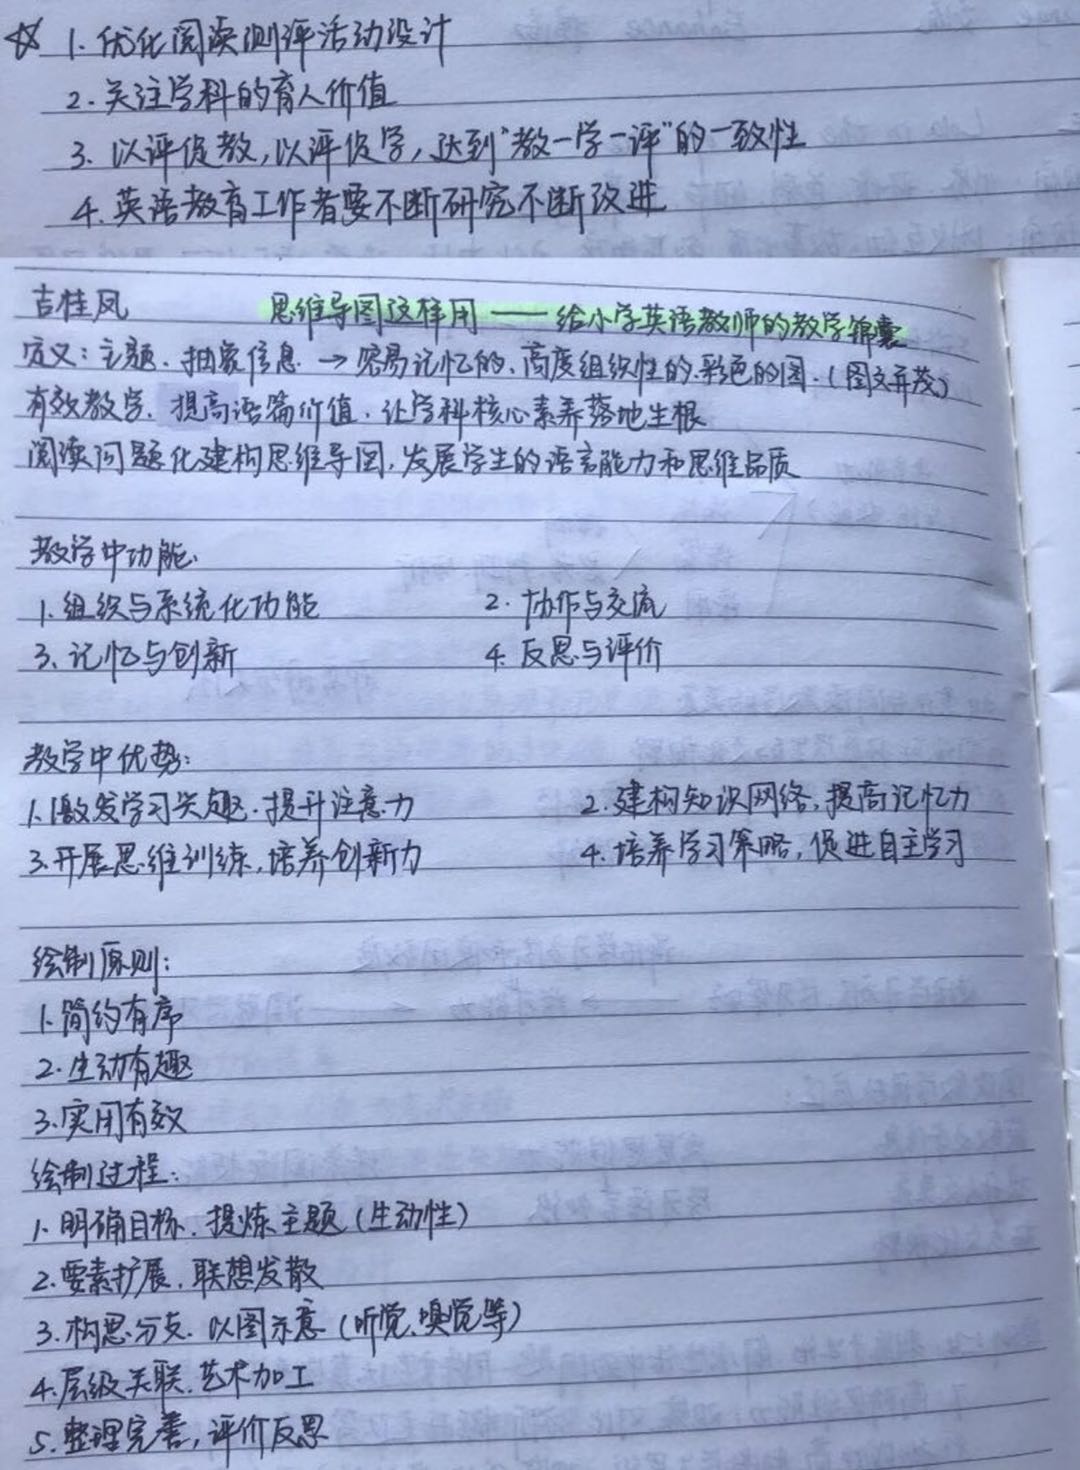 ☆ 1. 优化阅读测评活动设计
2. 关注学科的育人价值
3. 以评促教,以评促学,达到"教一学一评"的一致性
4. 英语教育工作者要不断研究不断改进
吉桂凤 思维导图这样用——给小学英语教师的教学锦囊
定义:主题.抽象信息 → 容易记忆的、高度组织性的.彩色的图.(图文并茂)
有效教学.提高语篇价值.让学科核心素养落地生根
阅读问题化建构思维导图,发展学生的语言能力和思维品质
教学中功能.
1.组织与系统化功能 2. 协作与交流
3.记忆与创新 4. 反思与评价
教学中优势:
1.激发学习兴趣.提升注意力 2.建构知识网络,提高记忆力
3.开展思维训练,培养创新力 4.培养学习策略,促进自主学习
绘制原则:
1.简约有序
2.生动有趣
3.实用有效
绘制过程:
1.明确目标.提炼主题(生动性)
2.要素扩展.联想发散
3.构思分支.以图示意(听觉、嗅觉等)
4.层级关联.艺术加工
5.整理完善,评价反思